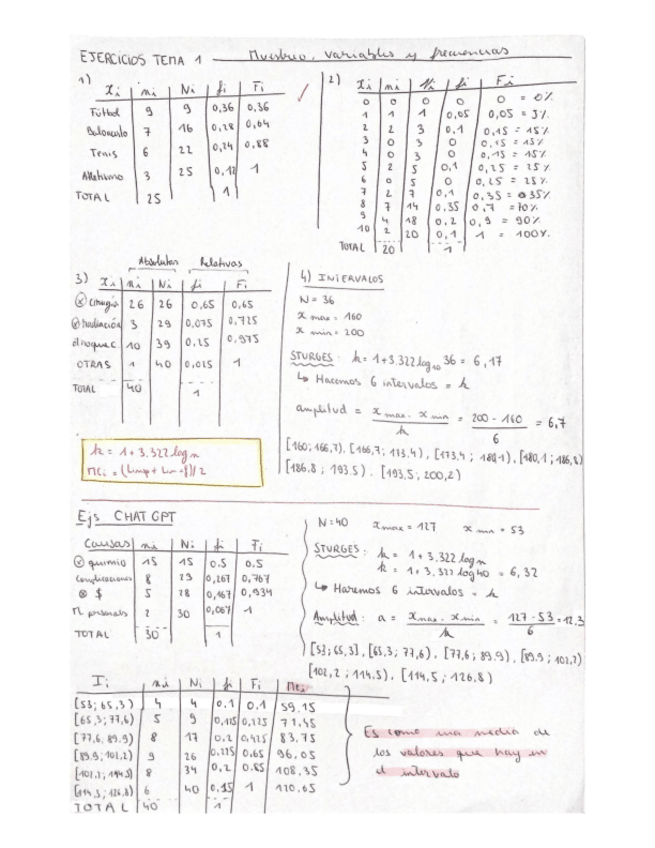 EJERCICIOS TEMA 1 — Muestreo, variables y frecuencias
1)
xi | ni | Ni | fi | Fi
Fútbol | 9 | 9 | 0,36 | 0,36
Balonmano | 7 | 16 | 0,28 | 0,64
Tenis | 6 | 22 | 0,24 | 0,88
Atletismo | 3 | 25 | 0,12 | 1
TOTAL | 25 | 1
2)
xi | ni | Ni | fi | Fi
0 | 0 | 0 | 0 | 0 = 0%
1 | 1 | 1 | 0,05 | 0,05 = 5%
2 | 2 | 3 | 0,1 | 0,15 = 15%
3 | 0 | 3 | 0 | 0,15 = 15%
4 | 0 | 3 | 0 | 0,15 = 15%
5 | 2 | 5 | 0,1 | 0,25 = 25%
6 | 0 | 5 | 0 | 0,25 = 25%
7 | 2 | 7 | 0,1 | 0,35 = 35%
8 | 7 | 14 | 0,35 | 0,7 = 70%
9 | 4 | 18 | 0,2 | 0,9 = 90%
10 | 2 | 20 | 0,1 | 1 = 100%
TOTAL | 20 | 1
Absolutas Relativas
3) xi | ni | Ni | fi | Fi
Cirugía | 26 | 26 | 0,65 | 0,65
Irradiación | 3 | 29 | 0,075 | 0,725
bloqueo c. | 10 | 39 | 0,25 | 0,975
OTRAS | 1 | 40 | 0,025 | 1
TOTAL | 40 | 1
k = 1 + 3,322 log n
mci = (Limsup + Lim inf)/2
4) INTERVALOS
N = 36
x max = 160
x min = 200
STURGES: k = 1+3.322 log10 36 = 6,17
↳ Hacemos 6 intervalos = k
amplitud = x max - x min / k = 200 - 160 / 6 = 6,7
[160; 166,7), [166,7; 173,4), [173,4; 180,1), [180,1; 186,8)
[186.8; 193.5). [193,5; 200,2)
Ejs CHAT GPT
Causas | ni | Ni | fi | Fi
quimio | 15 | 15 | 0.5 | 0.5
Complicaciones | 8 | 23 | 0,267 | 0,767
$ | 5 | 28 | 0,167 | 0,934
M. personales | 2 | 30 | 0,067 | 1
TOTAL | 30 | 1
N=40 x max = 127 x min = 53
STURGES: k = 1 + 3.322 log n
k = 1 + 3,322 log 40 = 6,32
↳ Haremos 6 intervalos = k
Amplitud: a = x max - x min / k = 127 - 53 / 6 = 12,3
[53; 65,3), [65,3; 77,6), [77,6; 89.9), [89.9; 102,2)
[102,2; 114,5), [114,5; 126,8)
Ii | ni | Ni | fi | Fi | mci
[53; 65,3) | 4 | 4 | 0.1 | 0.1 | 59.15
[65,3; 77,6) | 5 | 9 | 0,125 | 0,225 | 71,45
[77,6; 89.9) | 8 | 17 | 0.2 | 0,425 | 83,75
[89.9; 102,2) | 9 | 26 | 0,225 | 0.65 | 96,05
[102,2; 114,5) | 8 | 34 | 0,2 | 0.85 | 108,35
[114,5; 126,8) | 6 | 40 | 0,15 | 1 | 120,65
TOTAL | 40 | 1
Es como una media de
los valores que hay en
el intervalo